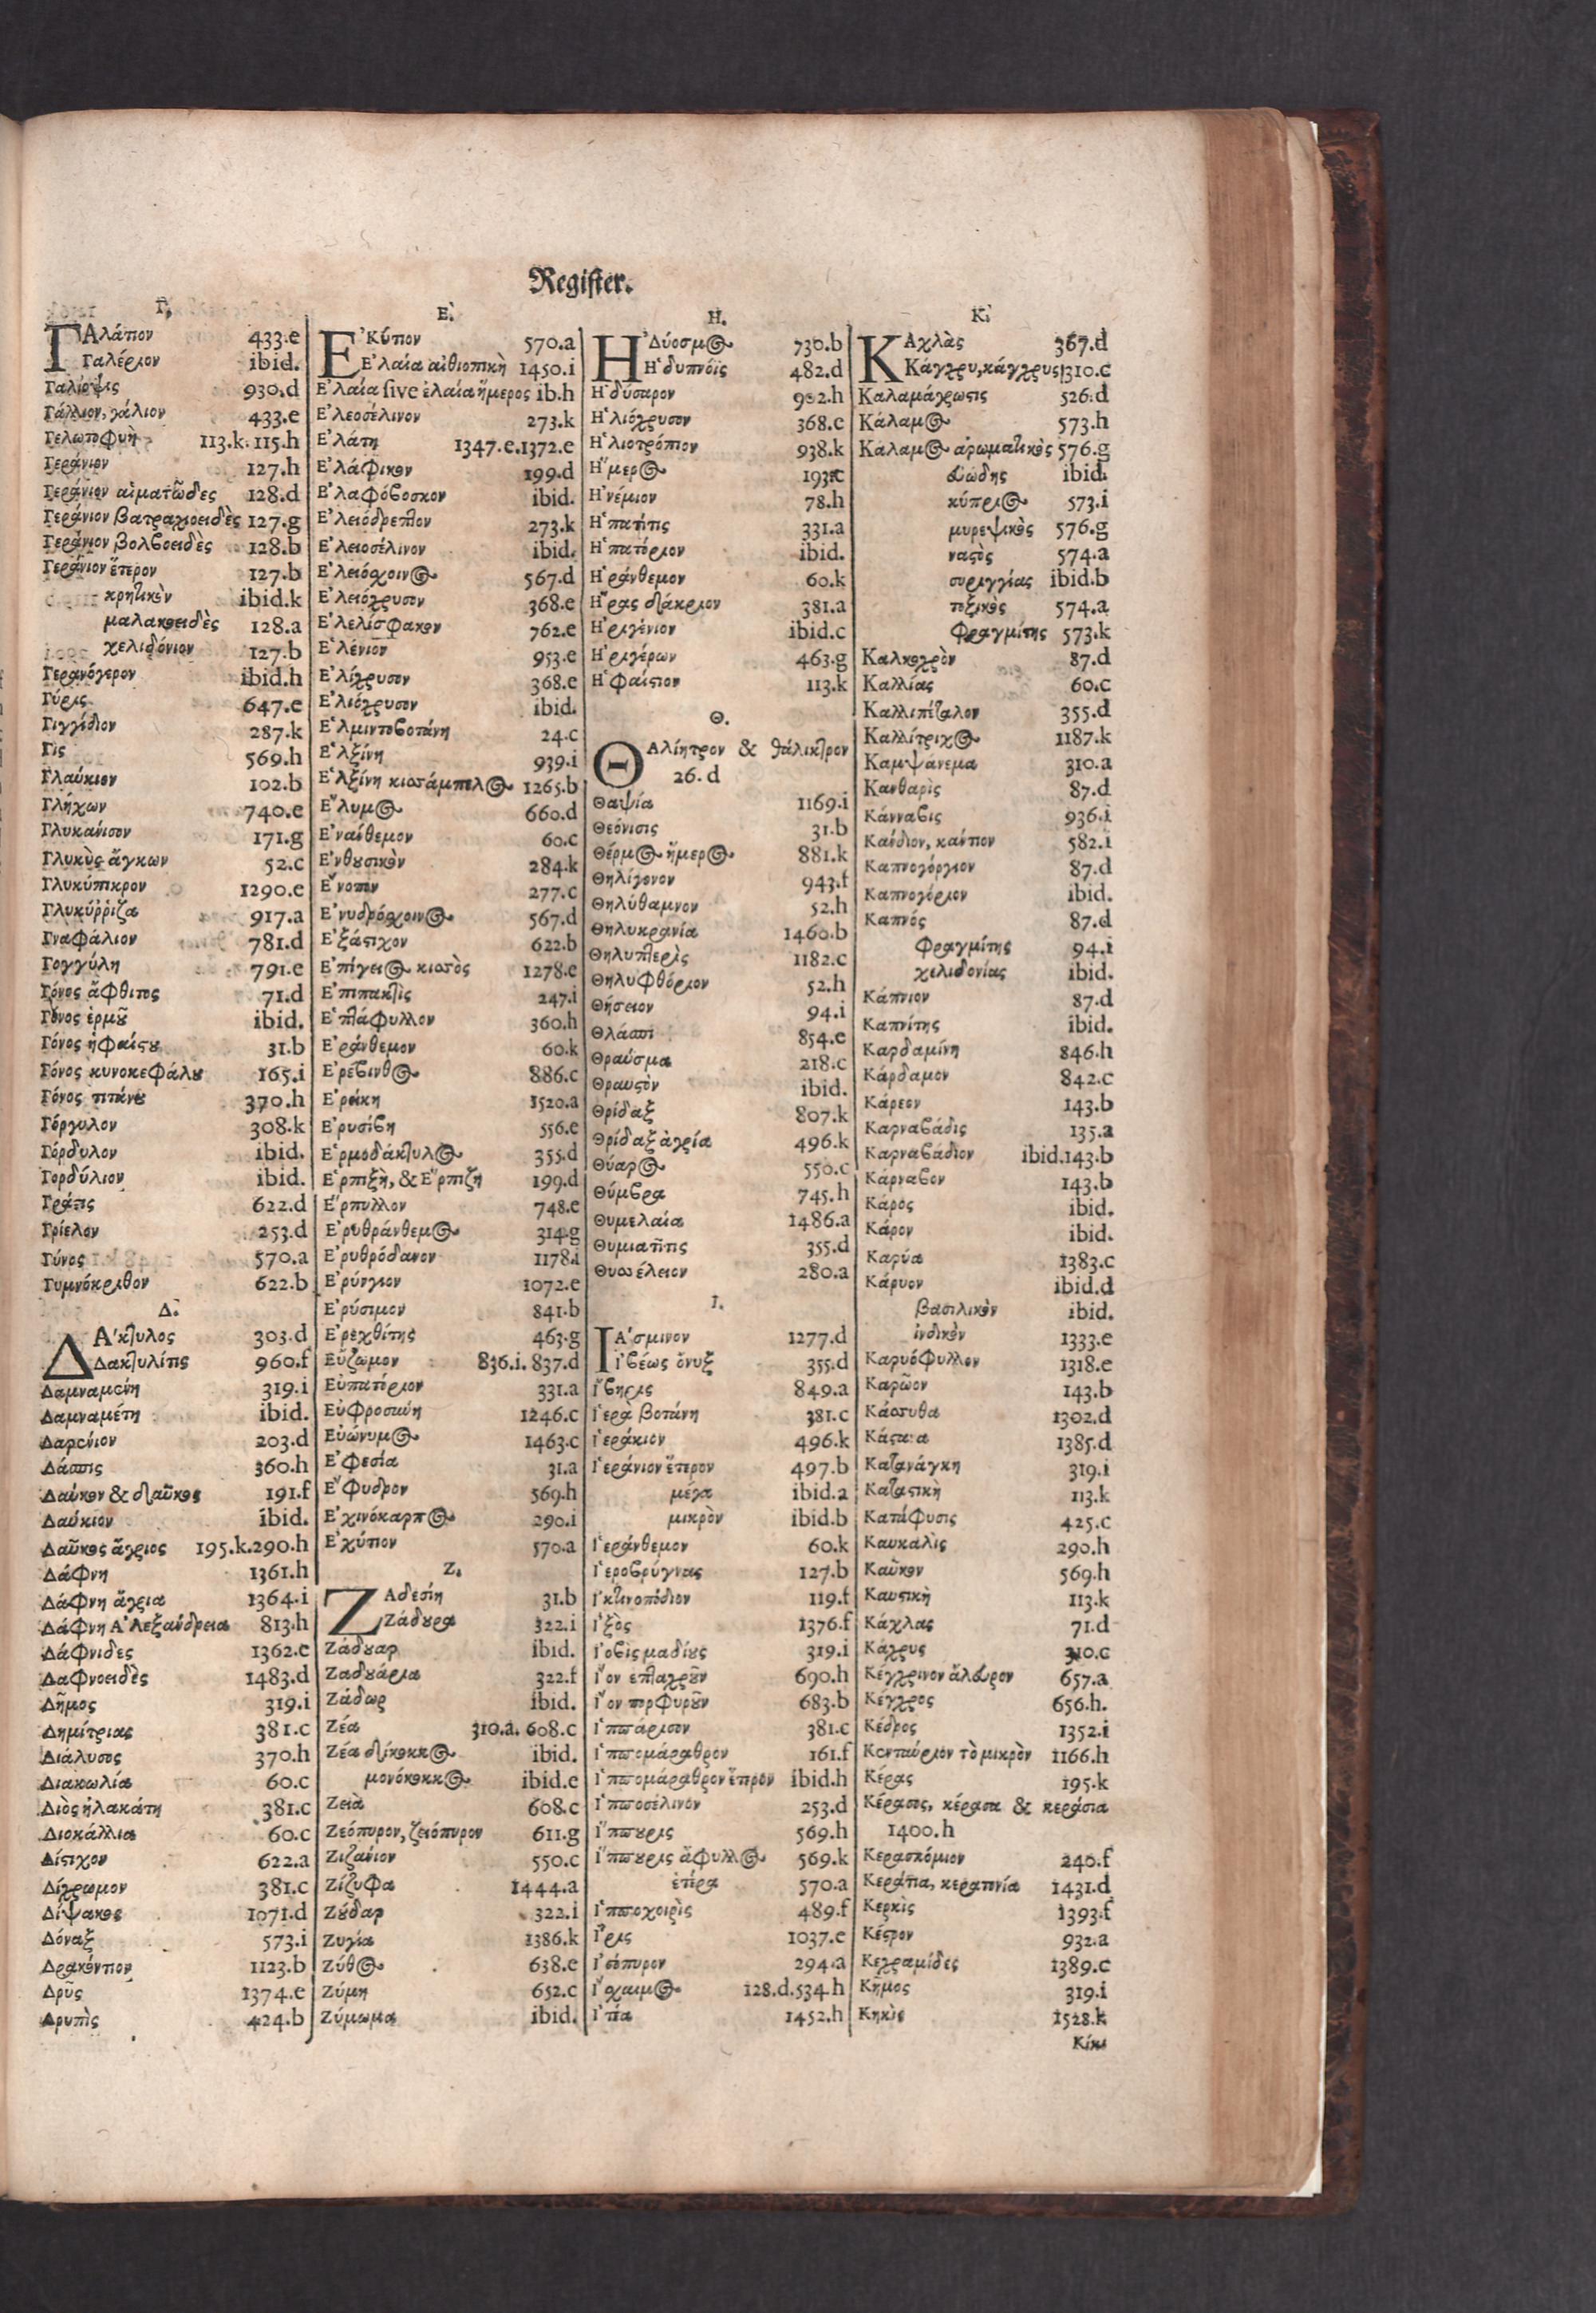 Register.
Γ.
ΓΑλάπον 433.e
Γαλέριον ibid.
Γαλίοψις 930.d
Γάλλιον, γάλιον 433.e
Γελωτοφυὴ 113.k. 115.h
Γεράνιον 127.h
Γεράνιον αἱματῶδες 128.d
Γεράνιον βατραχιοειδὲς 127.g
Γεράνιον βολβοειδὲς 128.b
Γεράνιον ἕτερον 127.b
κρητικὸν ibid.k
μαλακοειδὲς 128.a
χελιδόνιον 127.b
Γερανόγερον ibid.h
Γύρις 647.e
Γιγγίδιον 287.k
Γὶς 569.h
Γλαύκιον 102.b
Γλήχων 740.e
Γλυκάνισον 171.g
Γλυκὺς ἄγκων 52.c
Γλυκύπικρον 1290.e
Γλυκύῤῥιζα 917.a
Γναφάλιον 781.d
Γογγύλη 791.e
Γόνος ἄφθιτος 71.d
Γόνος ἑρμοῦ ibid.
Γόνος ἡφαίστου 31.b
Γόνος κυνοκεφάλου 165.i
Γόνος τιτάνου 370.h
Γόργυλον 308.k
Γόρδυλον ibid.
Γορδύλιον ibid.
Γράτις 622.d
Γρίελον 253.d
Γύνος 570.a
Γυμνόκριθον 622.b
Δ.
ΔΑ'κτυλος 303.d
Δακτυλίτις 960.f
Δαμναμένη 319.i
Δαμναμέτη ibid.
Δαρσίνιον 203.d
Δάσπις 360.h
Δαύκον & δαῦκος 191.f
Δαύκιον ibid.
Δαῦκος ἄγριος 195.k.290.h
Δάφνη 1361.h
Δάφνη ἄγρια 1364.i
Δάφνη Ἀλεξανδρεια 813.h
Δάφνιδες 1362.c
Δαφνοειδὲς 1483.d
Δῆμος 319.i
Δημίτριας 381.c
Διάλυσος 370.h
Διακωλία 60.c
Διὸς ἠλακάτη 381.c
Διοκάλλια 60.c
Δίστιχον 622.a
Δίχρωμον 381.c
Δίψακος 1071.d
Δόναξ 573.i
Δρακόντιον 1123.b
Δρῦς 1374.e
Δρυπὶς 424.b
Ε.
Ε'Κύπον 570.a
Ε'λαία αἰθιοπικὴ 1450.i
Ε'λαία sive ἐλαία ἥμερος ib.h
Ε'λεοσέλινον 273.k
Ε'λάτη 1347.e.1372.e
Ε'λάφικον 199.d
Ε'λαφόβοσκον ibid.
Ε'λειόδρεπτον 273.k
Ε'λειοσέλινον ibid.
Ε'λειόσχοινος 567.d
Ε'λειόχρυσον 368.e
Ε'λελίσφακον 762.e
Ε'λένιον 953.e
Ε'λίχρυσον 368.e
Ε'λιόχρυσον ibid.
Ε'λμιντοβοτάνη 24.c
Ε'λξίνη 939.i
Ε'λξίνη κισσάμπελος 1265.b
Ε῎λυμος 660.d
Ε'ναίθεμον 60.c
Ε'νθουσικὸν 284.k
Ε῎νοπον 277.c
Ε'νυδρόσχοινος 567.d
Ε'ξάστιχον 622.b
Ε'πίγειος κισσὸς 1278.e
Ε'πιπακτὶς 247.i
Ε'πτάφυλλον 360.h
Ε'ράνθεμον 60.k
Ε'ρέβινθος 886.c
Ε'ρείκη 1520.a
Ε'ρυσίβη 556.e
Ε'ρμοδάκτυλος 355.d
Ε'ρπιξὴ, & Ε῞ρπιζη 199.d
Ε῞ρπυλλον 748.e
Ε'ρυθράνθεμος 314.g
Ε'ρυθρόδανον 1178.i
Ε'ρύνγιον 1072.e
Ε'ρύσιμον 841.b
Ε'ρεχθίτης 463.g
Εὔζωμον 836.i. 837.d
Εὐπατόριον 331.a
Εὐφροσύνη 1246.c
Εὐώνυμος 1463.c
Ε'φεσία 31.a
Ε῎φυδρον 569.h
Ε'χινόκαρπος 290.i
Ε'χύπον 570.a
Ζ.
ΖΑδεσίη 31.b
Ζάδουρα 322.i
Ζάδουαρ ibid.
Ζαδουάρια 322.f
Ζάδωρ ibid.
Ζέα 310.a. 608.c
Ζέα δίκοκκος ibid.
μονόκοκκος ibid.e
Ζειὰ 608.c
Ζεόπυρον, ζειόπυρον 611.g
Ζιζάνιον 550.c
Ζίζυφα 1444.a
Ζούδαρ 322.i
Ζυγία 1386.k
Ζύθος 638.e
Ζύμη 652.c
Ζύμωμα ibid.
Η.
Η'Δύοσμος 730.b
Η'δυπνόις 482.d
Η'δύσαρον 902.h
Η'λιόχρυσον 368.e
Η'λιοτρόπιον 938.k
Η῞μερος 193.c
Η'νέμιον 78.h
Η'πατίτις 331.a
Η'πατόριον ibid.
Η'ράνθεμον 60.k
Η῞ρας δάκριον 381.a
Η'ριγένιον ibid.c
Η'ριγέρων 463.g
Η'φαίστιον 113.k
Θ.
ΘΑλίητρον & θάλικτρον
26.d
Θαψία 1169.i
Θεόνισις 31.b
Θέρμος ἥμερος 881.k
Θηλίγονον 943.f
Θηλύθαμνον 52.h
Θηλυκρανία 1460.b
Θηλυπτερὶς 1182.c
Θηλυφθόριον 52.h
Θήσειον 94.i
Θλάσπι 854.e
Θραύσμα 218.c
Θραυστὸν ibid.
Θρίδαξ 807.k
Θρίδαξ ἀγρία 496.k
Θύαρος 550.c
Θύμβρα 745.h
Θυμελαία 1486.a
Θυμιατῖτις 355.d
Θυωέλειον 280.a
Ι.
ΙΑ'σμινον 1277.d
Ι'βέως ὄνυξ 355.d
Ι῎βηρις 849.a
Ι'ερὰ βοτάνη 381.c
Ι'εράκιον 496.k
Ι'εράνιον ἕτερον 497.b
μέγα ibid.a
μικρὸν ibid.b
Ι'εράνθεμον 60.k
Ι'εροβρύγνας 127.b
Ι'κτινοπόδιον 119.f
Ι'ξὸς 1376.f
Ι'οβὶς μαδίους 319.i
Ι῎ον ἐπταχροῦν 690.h
Ι῎ον πορφυροῦν 683.b
Ι'ππάρισον 381.c
Ι'ππομάραθρον 161.f
Ι'ππομάραθρον ἕτερον ibid.h
Ι'πποσέλινον 253.d
Ι῞ππουρις 569.h
Ι῞ππουρις ἄφυλλος 569.k
ἑτέρα 570.a
Ι'πποχοιρὶς 489.f
Ι῏ρις 1037.e
Ι'σόπυρον 294.a
Ι῎σχαιμος 128.d.534.h
Ι'τέα 1452.h
Κ.
ΚΑχλὰς 367.d
Κάγχρυ, κάγχρυς 1310.c
Καλαμάγρωστις 526.d
Κάλαμος 573.h
Κάλαμος ἀρωματικὸς 576.g
εὐώδης ibid.
κύπριος 573.i
μυρεψικὸς 576.g
ναστὸς 574.a
συριγγίας ibid.b
τοξικὸς 574.a
Φραγμίτης 573.k
Καλκοχρὸν 87.d
Καλλίας 60.c
Καλλιπέταλον 355.d
Καλλίτριχος 1187.k
Καμψάνεμα 310.a
Κανθαρὶς 87.d
Κάνναβις 936.i
Κάνδιον, κάντιον 582.i
Καπνογόργιον 87.d
Καπνογόριον ibid.
Καπνός 87.d
Φραγμίτης 94.i
χελιδονίας ibid.
Κάπνιον 87.d
Καπνίτης ibid.
Καρδαμίνη 846.h
Κάρδαμον 842.c
Κάρεον 143.b
Καρναβάδις 135.a
Καρναβάδιον ibid.143.b
Κάρναβον 143.b
Κάρος ibid.
Κάρον ibid.
Καρύα 1383.c
Κάρυον ibid.d
βασιλικὸν ibid.
ἰνδικὸν 1333.e
Καρυόφυλλον 1318.e
Καρῶον 143.b
Κάσσυθα 1302.d
Κάστανα 1385.d
Κατανάγκη 319.i
Καταστικὴ 113.k
Κατάφυσις 425.c
Καυκαλὶς 290.h
Καῦκον 569.h
Καυστικὴ 113.k
Κάχλας 71.d
Κάχρυς 310.c
Κέγχρινον ἄλευρον 657.a
Κέγχρος 656.h.
Κέδρος 1352.i
Κενταύριον τὸ μικρὸν 1166.h
Κέρας 195.k
Κέρασος, κέρασα & κεράσια
1400.h
Κερασκόμιον 240.f
Κεράτια, κερατωνία 1431.d
Κερκὶς 1393.f
Κέστρον 932.a
Κεχραμίδες 1389.c
Κῆμος 319.i
Κηκὶς 1528.k
Κίκι